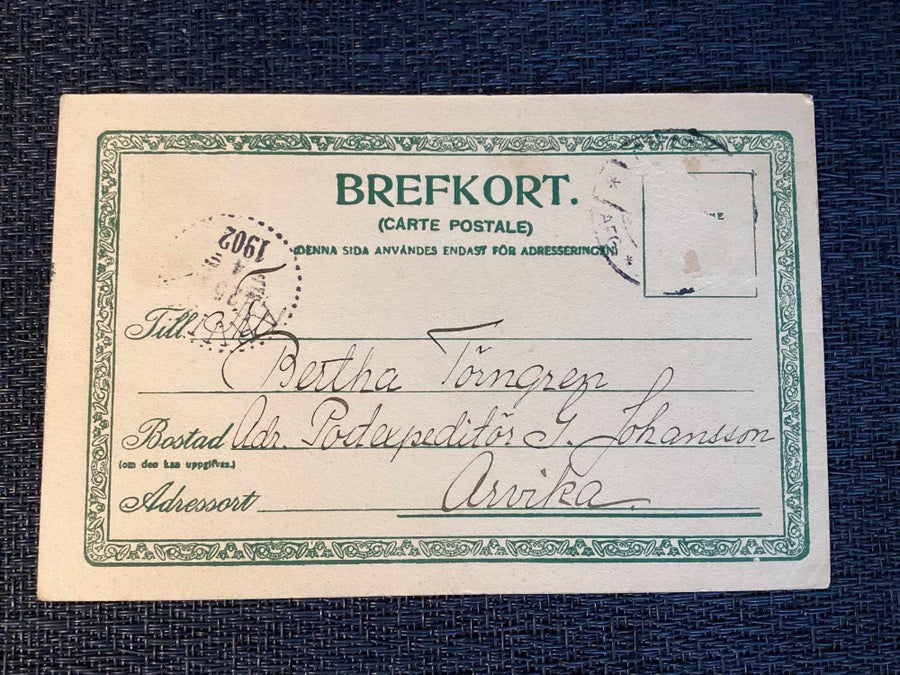 BREFKORT.
(CARTE POSTALE)
(DENNA SIDA ANVÄNDES ENDAST FÖR ADRESSERINGEN)
1902
Till
Bertha Törngren
Bostad Adr. Podexpeditör G. Johansson
(om den kan uppgifvas.)
Adressort Arvika